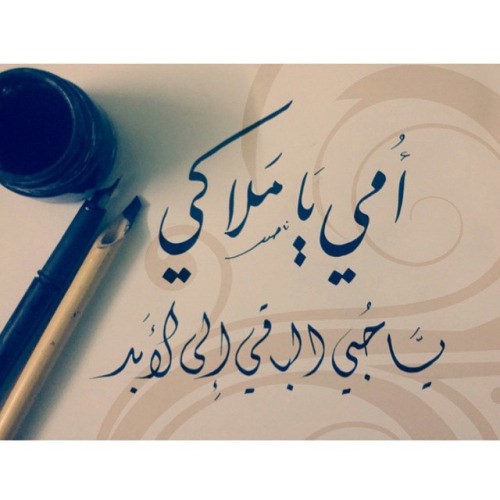 أُمي يَا مَلاكي
يَا حُبي الباقي إلى الأَبَد